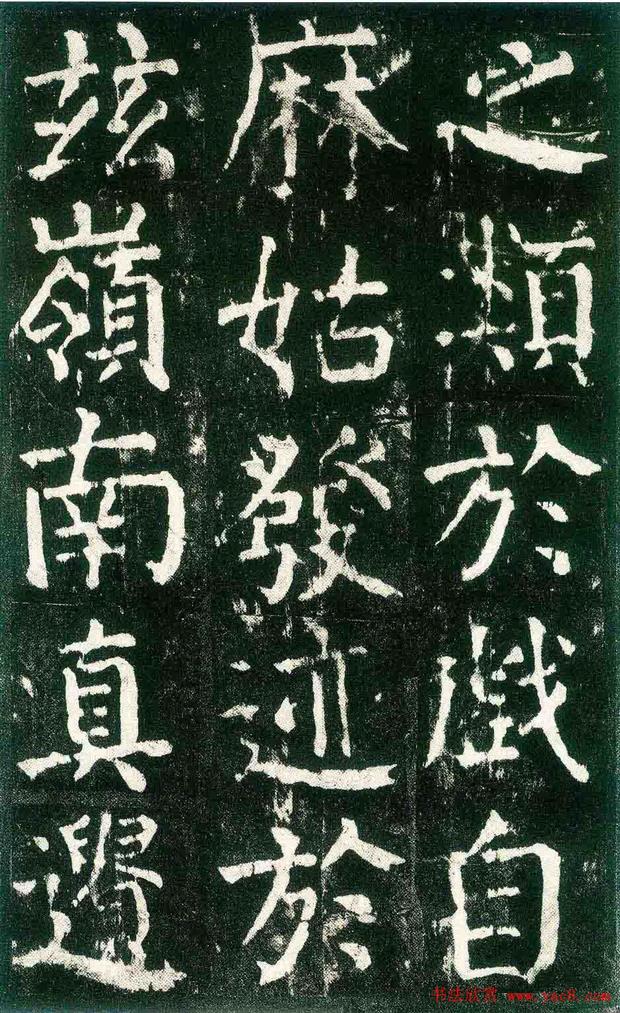 之類於戲自
麻姑發迹於
玆嶺南真遺
书法欣赏 www.yac8.com